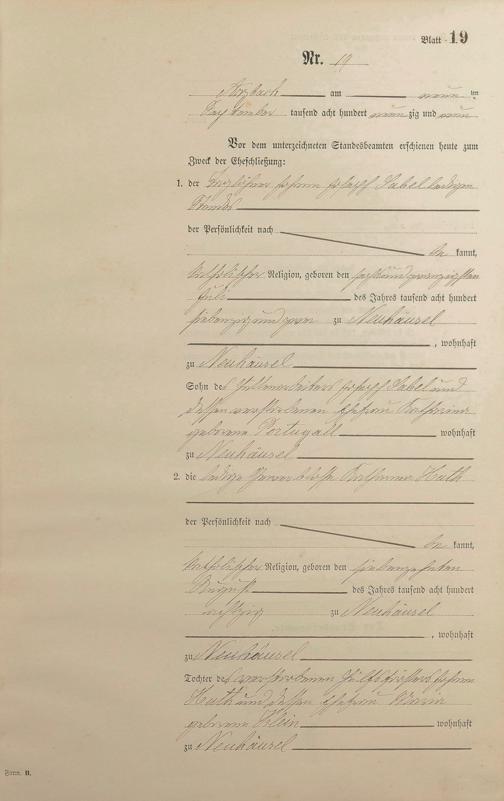 Blatt 19
Nr. 19
Arzbach am neun ten
September tausend acht hundert neun zig und neun
Vor dem unterzeichneten Standesbeamten erschienen heute zum
Zweck der Eheschließung:
1. der Johann Joseph Sabel ledigen
Standes
der Persönlichkeit nach
be kannt,
katholischer Religion, geboren den sechsundzwanzigsten
Juli des Jahres tausend acht hundert
siebenzig und zwei zu Neuhäusel
, wohnhaft
zu Neuhäusel
Sohn des Hüttenarbeiters Joseph Sabel und
dessen verstorbenen Ehefrau Katharina
geborene Portugall wohnhaft
zu Neuhäusel
2. die ledige gewerblose Katharina Huth
der Persönlichkeit nach
be kannt,
katholischer Religion, geboren den siebenzehnten
August des Jahres tausend acht hundert
achtzig zu Neuhäusel
, wohnhaft
zu Neuhäusel
Tochter des verstorbenen Johann
Huth und dessen Ehefrau Maria
geborene Klein wohnhaft
zu Neuhäusel
Form. B.